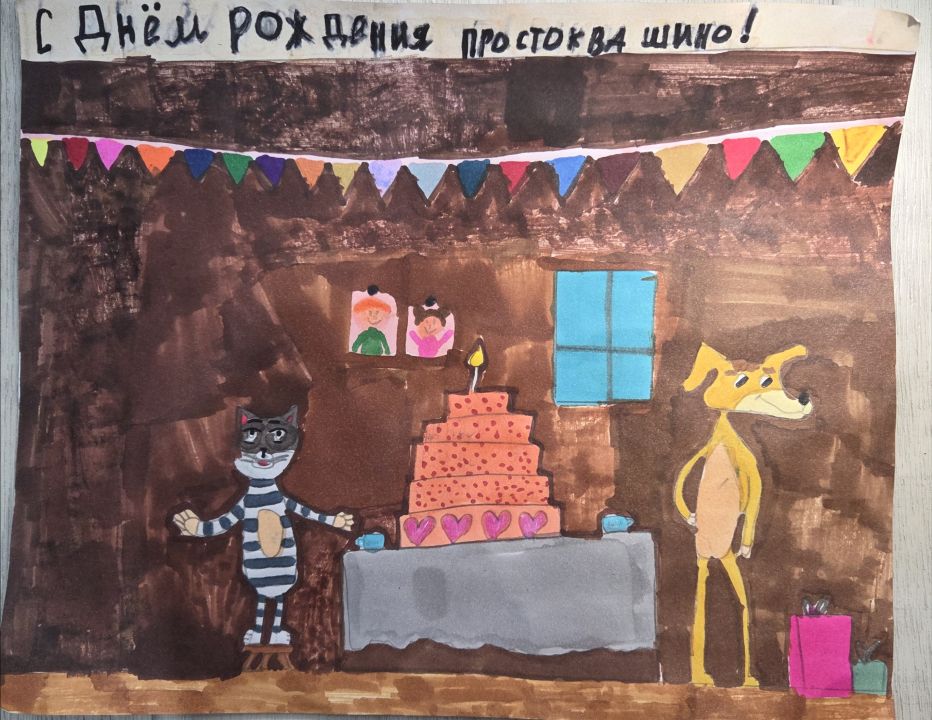 С Днём рождения ПРОСТОКВАШИНО!